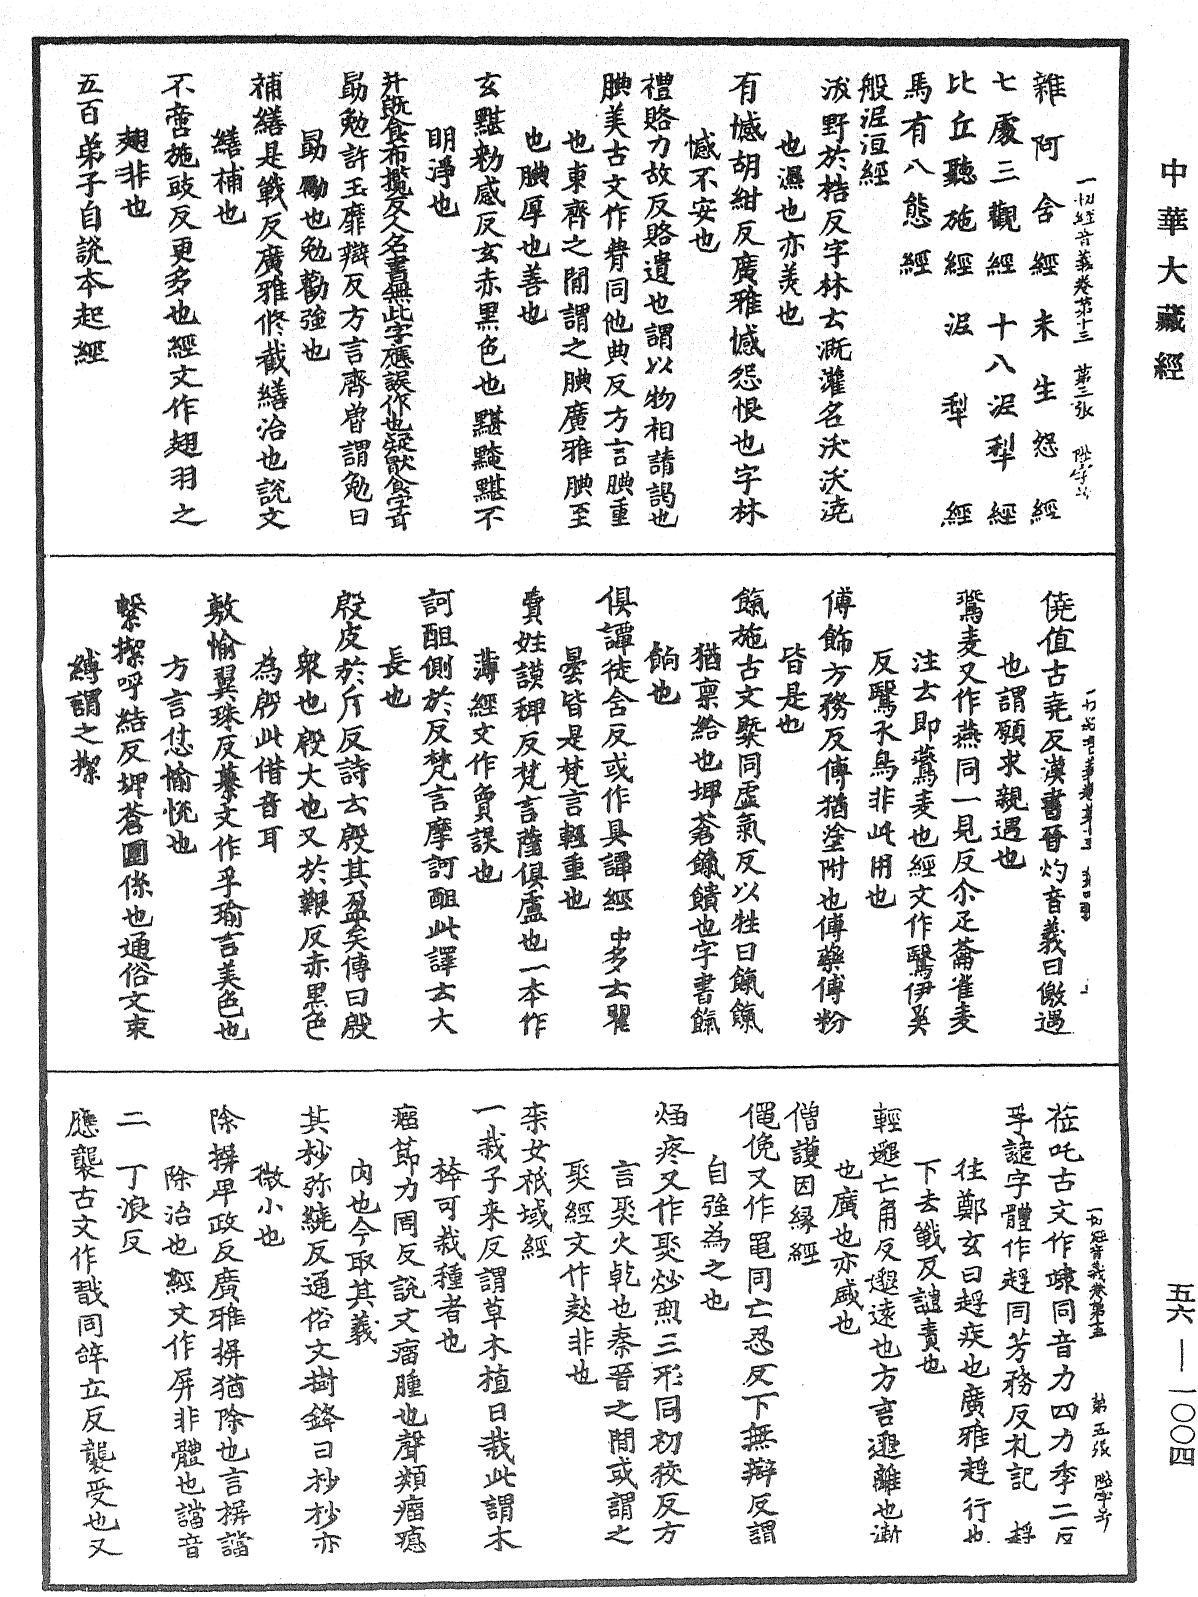 中華大藏經
一切經音義卷第十三　第三張
雜阿含經　未生怨經
七處三觀經　十八泥犁經
比丘聽施經　泥犁經
馬有八態經
般泥洹經
沃野於桔反字林云溉灌名沃沃澆
也濕也亦美也
有憾胡紺反廣雅憾怨恨也字林
憾不安也
禮賂力故反賂遺也謂以物相請謁也
腆美古文作㥏同他典反方言腆重
也東齊之間謂之腆廣雅腆至
也腆厚也善也
玄黮勑感反玄赤黑色也黮黤黮不
明淨也
勗勉許玉靡辯反方言齊魯謂勉曰
勗勵也勉勸強也
補繕是戰反廣雅修截繕治也說文
繕補也
不啻施豉反更多也經文作翅羽之
翅非也
五百弟子自說本起經
僥值古堯反漢書晉灼音義曰僥遇
也謂願求親遇也
鷰麦又作燕同一見反尒疋蘥雀麦
注云即鷰麦也經文作鷖伊奚
反鷖水鳥非此用也
傅飾方務反傅猶塗附也傅藥傅粉
皆是也
餼施古文槩同虛氣反以牲曰餼餼
猶稟給也埤蒼餼饋也字書餼
餉也
俱譚徒含反或作具譚經中多云瞿
曇皆是梵言輕重也
賣姓謨稗反梵言薩俱盧也一本作
薄經文作賣誤也
訶䣯側於反梵言摩訶䣯此譯云大
長也
殷皮於斤反詩云殷其盈矣傳曰殷
衆也殷大也又於艱反赤黑色
為殷此借音耳
敷愉翼珠反纂文作孚瑜言美色也
方言怤愉悅也
繫㨝呼結反埤蒼圍係也通俗文束
縛謂之㨝
一切經音義卷第十三　第五張
莅吒古文作𥪁同音力四力季二反
孚譴字體作趕同芳務反礼記
往鄭玄曰趕疾也廣雅趕行也
下去戰反譴責也
輕邈亡角反邈遠也方言邈離也漸
也廣也亦盛也
僧護因緣經
僶俛又作黽同亡忍反下無辯反謂
自強為之也
㷅疼又作𤎖炒㷅三形同初狡反方
言𤎖火乾也秦晉之間或謂之
𤎖經文作㷄非也
柰女祇域經
一栽子來反謂草木植曰栽此謂木
椊可栽種者也
瘤節力周反說文瘤腫也聲類瘤瘜
肉也今取其義
其杪弥繞反通俗文樹鋒曰杪杪亦
微小也
除摒卑政反廣雅摒猶除也言摒譡
除治也經文作屏非體也譡音
二丁浪反
應襲古文作戠同辝立反襲受也又
五六—一〇〇四